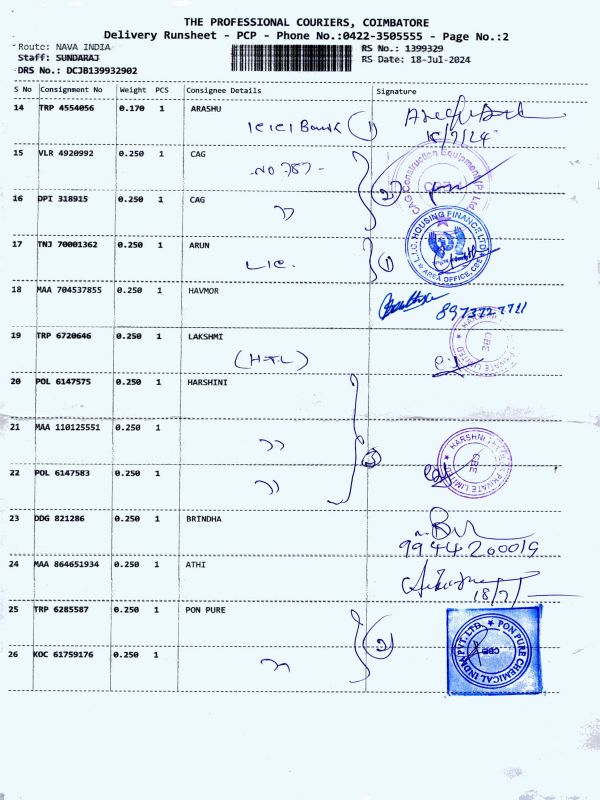 THE PROFESSIONAL COURIERS, COIMBATORE
Delivery Runsheet - PCP - Phone No.:0422-3505555 - Page No.:2
Route: NAVA INDIA
RS No.: 1399329
Staff: SUNDARAJ
RS Date: 18-Jul-2024
DRS No.: DCJB139932902
S No Consignment No Weight PCS Consignee Details Signature
14 TRP 4554056 0.170 1 ARASHU
ICICI Bank 1
18/7/24
15 VLR 4920992 0.250 1 CAG
NO 787-
CAG Construction Equipment(P) Ltd
2
16 DPI 318915 0.250 1 CAG
17 TNJ 70001362 0.250 1 ARUN
LIC.
1
L.I.C. HOUSING FINANCE LTD. AREA OFFICE, CBE
18 MAA 704537855 0.250 1 HAVMOR
8973727711
19 TRP 6720646 0.250 1 LAKSHMI
(H.T.L)
PRIVATE LIMITED CBE
20 POL 6147575 0.250 1 HARSHINI
21 MAA 110125551 0.250 1
"
3
HARSHNI PRIVATE LIMITED CBE
22 POL 6147583 0.250 1
"
23 DDG 821286 0.250 1 BRINDHA
9944200019
24 MAA 864651934 0.250 1 ATHI
18/7/
25 TRP 6285587 0.250 1 PON PURE
2
PON PURE CHEMICAL INDIA PVT LTD. CBE
26 KOC 61759176 0.250 1
"